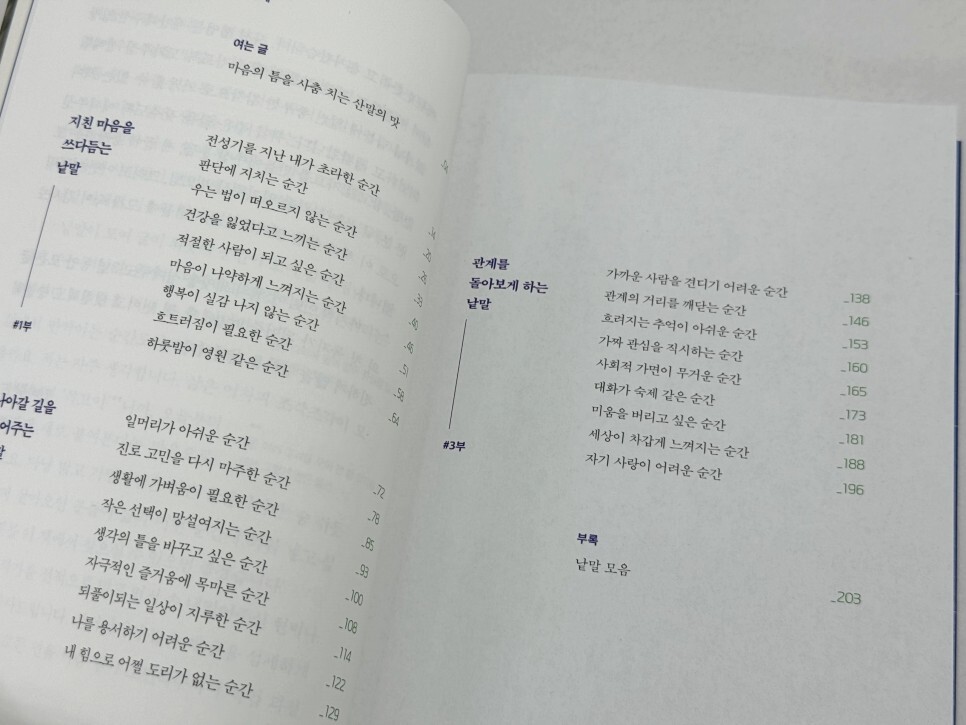 여는 글
마음의 틈을 사춤 치는 산말의 맛
지친 마음을
쓰다듬는
낱말
#1부
전성기를 지난 내가 초라한 순간 _14
판단에 지치는 순간 _20
우는 법이 떠오르지 않는 순간
건강을 잃었다고 느끼는 순간
적절한 사람이 되고 싶은 순간 _40
마음이 나약하게 느껴지는 순간 _46
행복이 실감 나지 않는 순간 _51
흐트러짐이 필요한 순간 _58
하룻밤이 영원 같은 순간 _64
아갈 길을
어주는
일머리가 아쉬운 순간 _72
진로 고민을 다시 마주한 순간 _78
생활에 가벼움이 필요한 순간 _85
작은 선택이 망설여지는 순간 _93
생각의 틀을 바꾸고 싶은 순간 _100
자극적인 즐거움에 목마른 순간 _108
되풀이되는 일상이 지루한 순간 _114
나를 용서하기 어려운 순간 _122
내 힘으로 어쩔 도리가 없는 순간 _129
관계를
돌아보게 하는
낱말
#3부
가까운 사람을 견디기 어려운 순간 _138
관계의 거리를 깨닫는 순간 _146
흐려지는 추억이 아쉬운 순간 _153
가짜 관심을 직시하는 순간 _160
사회적 가면이 무거운 순간 _165
대화가 숙제 같은 순간 _173
미움을 버리고 싶은 순간 _181
세상이 차갑게 느껴지는 순간 _188
자기 사랑이 어려운 순간 _196
부록
낱말 모음 _203